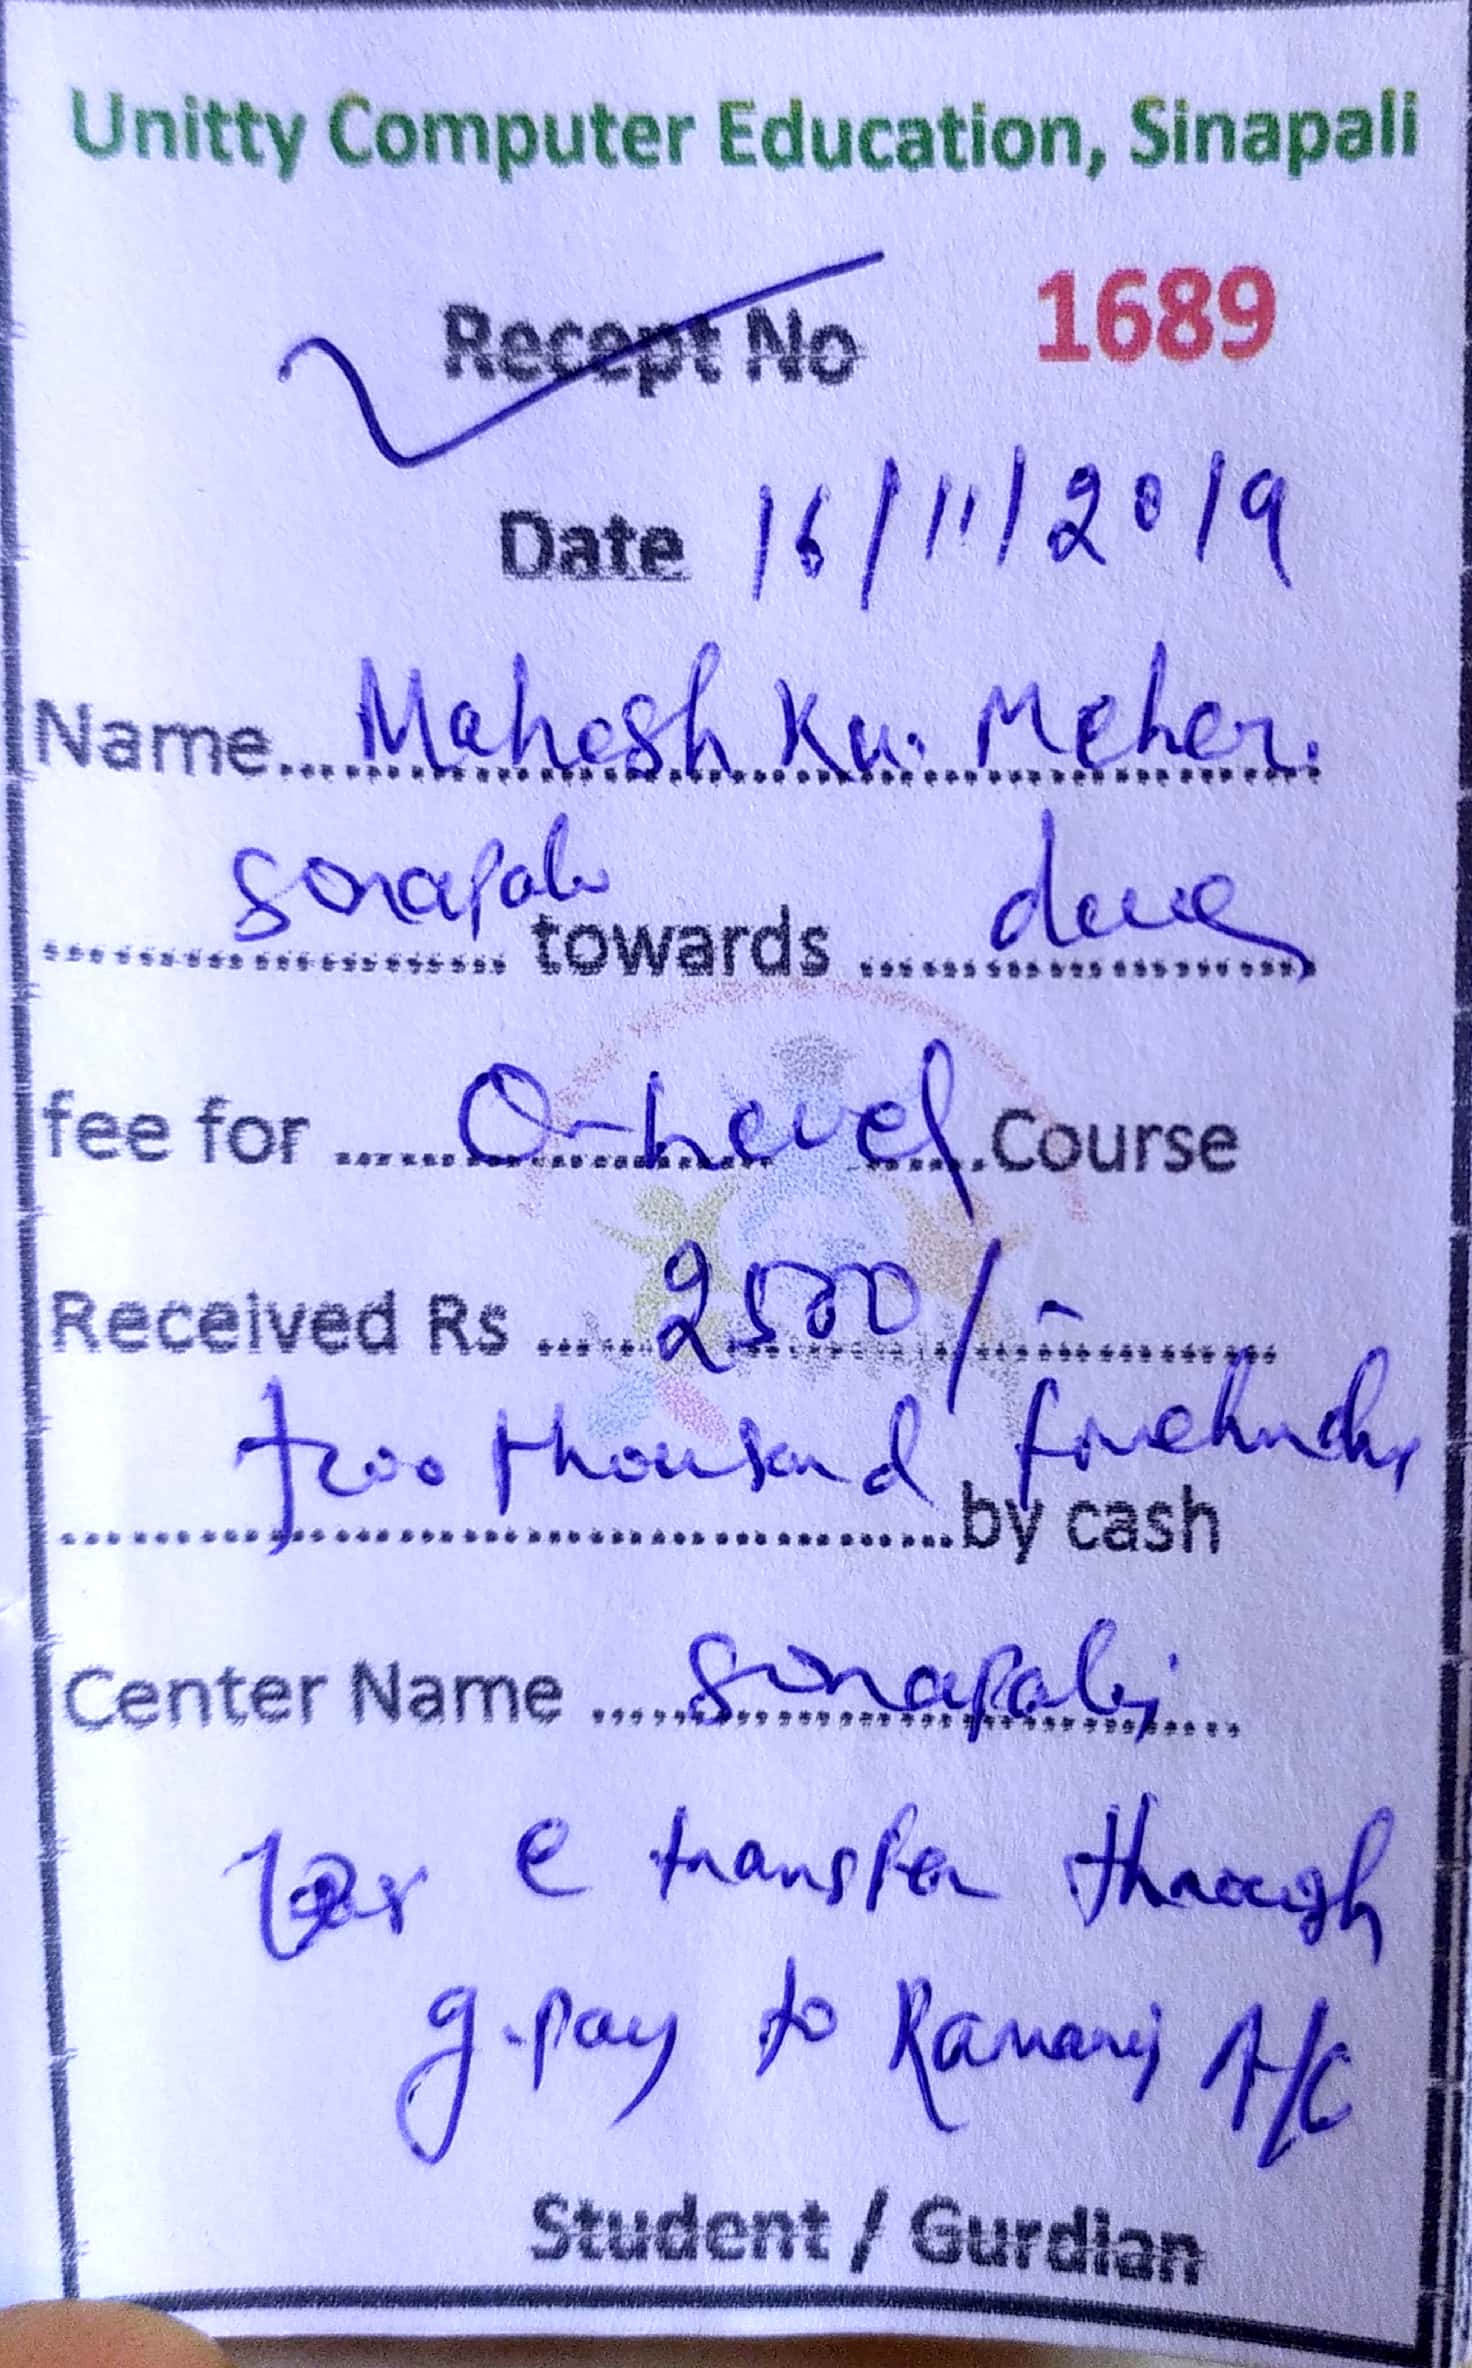 Unitty Computer Education, Sinapali
Recept No 1689
Date 16/11/2019
Name... Mahesh Ku. Meher.
Sinapali towards due
fee for O-Level Course
Received Rs 2500/-
two thousand by cash
Center Name Sinapali
e transfer through
g-pay to A/C
Student / Gurdian